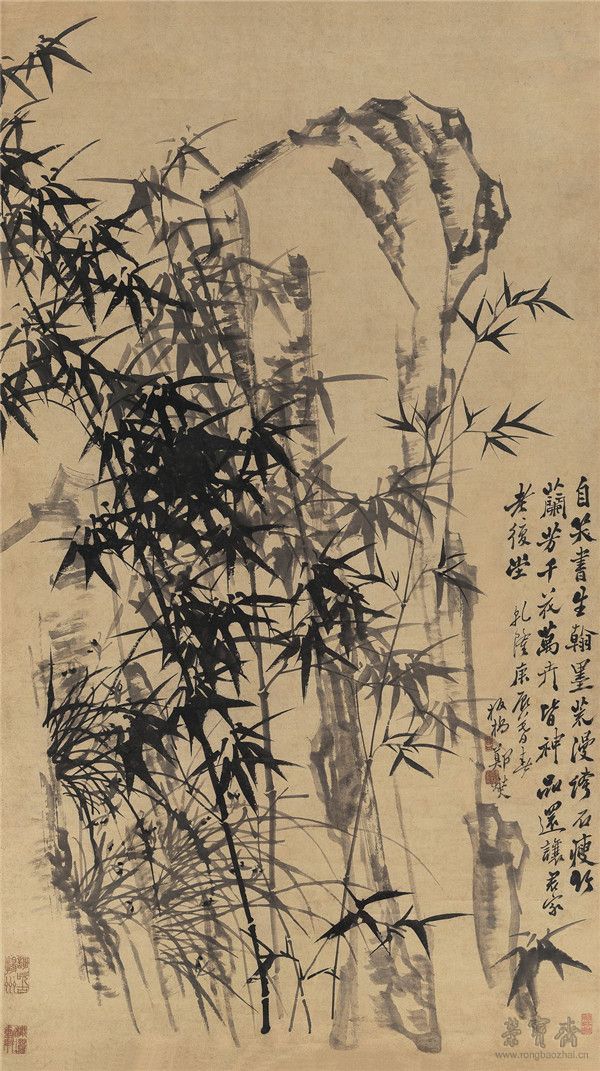 自笑書生翰墨荒漫誇石瘦竹
蘭芳千花萬卉皆神品還讓君家
老復堂 乾隆庚辰春
板橋鄭燮
榮寶齋
www.rongbaozhai.cn